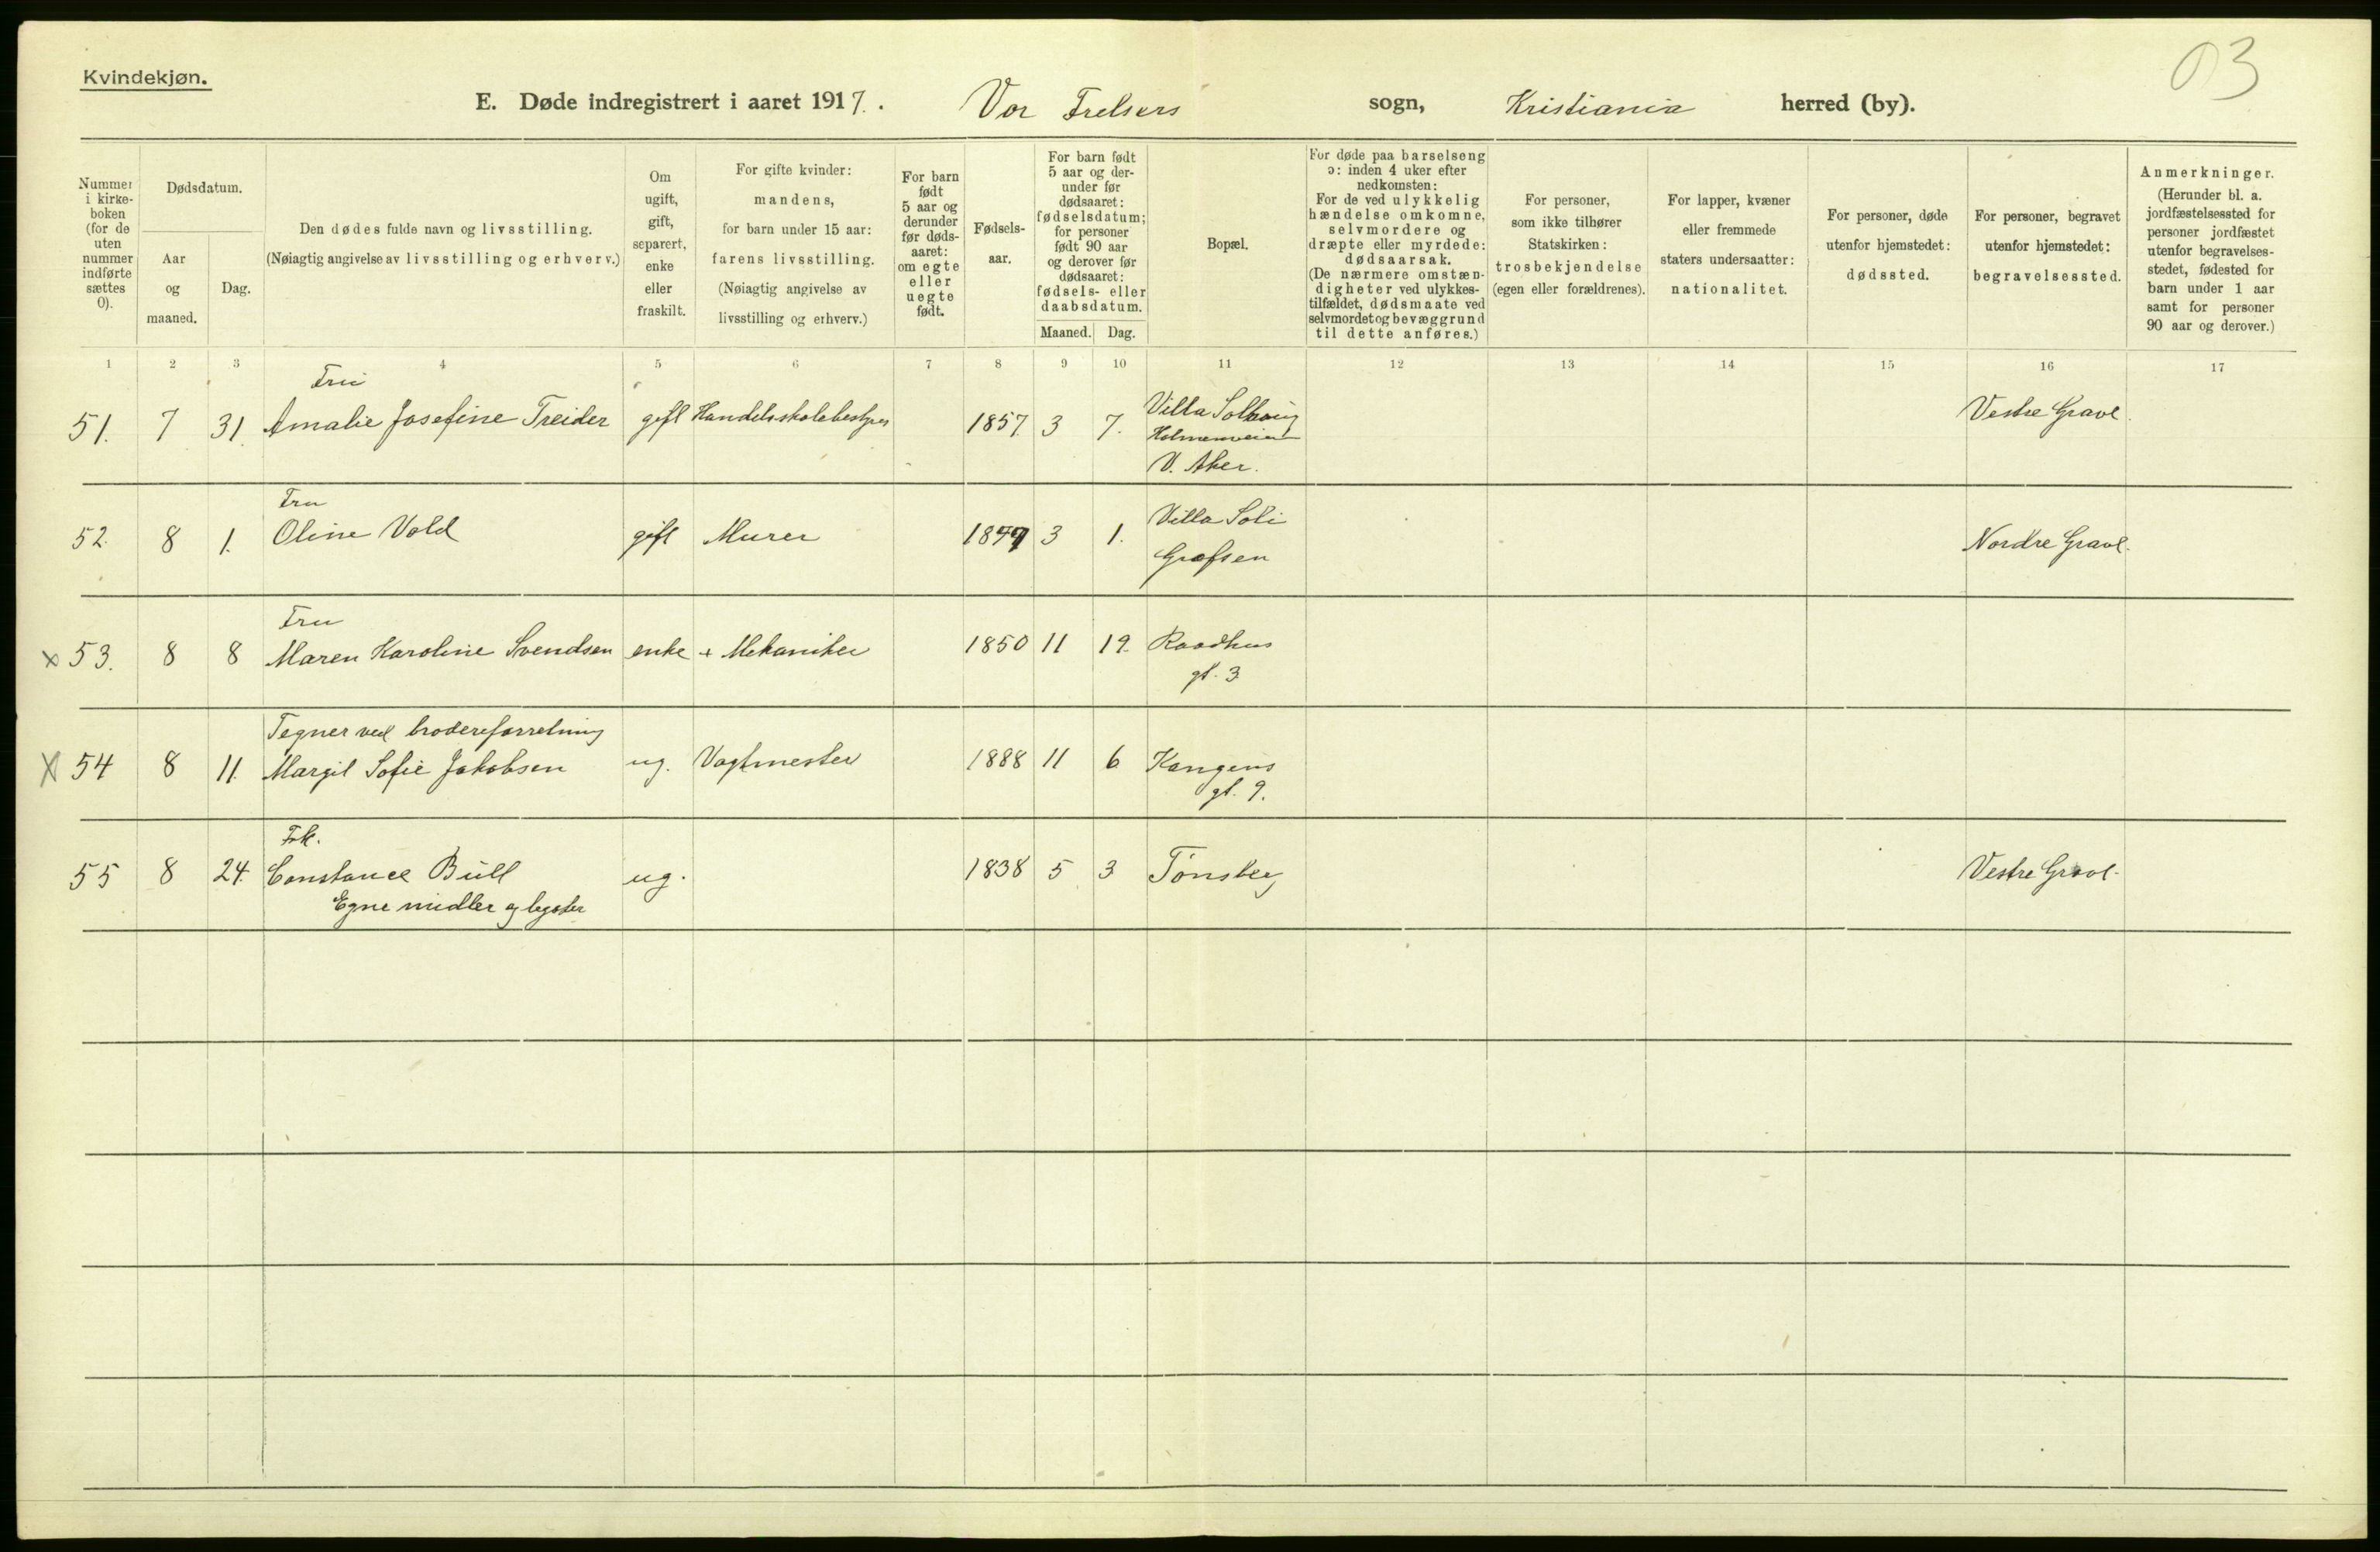 Kvindekjøn.
03
E. Døde indregistrert i aaret 1917. Vor Frelsers sogn, Kristiania herred (by).
Nummer i kirke-boken (for de uten nummer indførte sættes 0).
Dødsdatum.
Aar og maaned.
Dag.
Den dødes fulde navn og livsstilling.
(Nøiagtig angivelse av livsstilling og erhverv.)
Om ugift, gift, separert, enke eller fraskilt.
For gifte kvinder:
mandens,
for barn under 15 aar:
farens livsstilling.
(Nøiagtig angivelse av
livsstilling og erhverv.)
For barn født 5 aar og derunder før døds-aaret: om egte eller uegte født.
Fødsels-aar.
For barn født 5 aar og der-under før dødsaaret: fødselsdatum; for personer født 90 aar og derover før dødsaaret: fødsels- eller daabsdatum.
Maaned. Dag.
Bopæl.
For døde paa barselseng
ɔ: inden 4 uker efter
nedkomsten:
For de ved ulykkelig
hændelse omkomne,
selvmordere og
dræpte eller myrdede:
dødsaarsak.
(De nærmere omstæn-
digheter ved ulykkes-
tilfældet, dødsmaate ved
selvmordet og bevæggrund
til dette anføres.)
For personer,
som ikke tilhører
Statskirken:
trosbekjendelse
(egen eller forældrenes).
For lapper, kvæner
eller fremmede
staters undersaatter:
nationalitet.
For personer, døde
utenfor hjemstedet:
dødssted.
For personer, begravet
utenfor hjemstedet:
begravelsessted.
Anmerkninger.
(Herunder bl. a.
jordfæstelsessted for
personer jordfæstet
utenfor begravelses-
stedet, fødested for
barn under 1 aar
samt for personer
90 aar og derover.)
1 2 3 4 5 6 7 8 9 10 11 12 13 14 15 16 17
Fru
51. 7 31. Amalie Josefine Treider gift Handelsskolebestyrer 1857. 3 7. Villa Solhaug Vestre Gravl.
Holmenveien
V. Aker.
Fru
52. 8 1. Oline Vold gift Murer 3 1. Villa Soli Nordre Gravl.
Grefsen
Fru
x 53. 8 8 Maren Karoline Svendsen enke + Mekaniker 1850 11 19. Raadhus
gt. 3
Tegner ved broderiforretning
X 54 8 11. Margit Sofie Jakobsen ug. Vagtmester 1888 11 6 Kongens
gt. 9.
Frk.
55 8 24. Constance Bull ug. 1838 5 3 Tønsberg Vestre Gravl.
Egne midler og legater